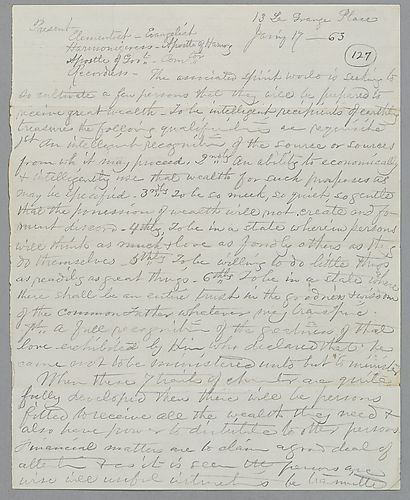 13 La Grange Place
Present Jan'y 17 - 63
Elementist - Evangelist
Harmonigress - Apostle of Harmony 127
Apostle of Govt -
Recordess - The associated Spirit world is seeking to
so cultivate a few persons that they will be prepared to
receive great wealth - To be intelligent recipients of earthly
treasures the following qualifications are requisite
1st An intelligent recognition of the source or sources
from wh it may proceed. 2ndly An ability to economically
& intelligently use that wealth for such purposes as
may be specified - 3rdly To be so meek, so quiet, so gentle
that the possession of wealth will not create and fo-
ment discord - 4thly, To be in a state wherein persons
will think as much & love as fondly others as they
do themselves - 5thly To be willing to do little things
as readily as great things - 6thly To be in a state where
there shall be an entire trust in the goodness & wisdom
of the Common Father whatever may transpire -
7th, A full recognition of the greatness of that
love exhibited by Him who declared that "he
came not to be ministered unto but to minister"
When these 7 traits of character are quite
fully developed then there will be persons
fitted to receive all the wealth they need &
also have power to distribute to other persons
Financial matters are to claim a good deal of
attention & as it is seen persons are
wise will useful be transmitted